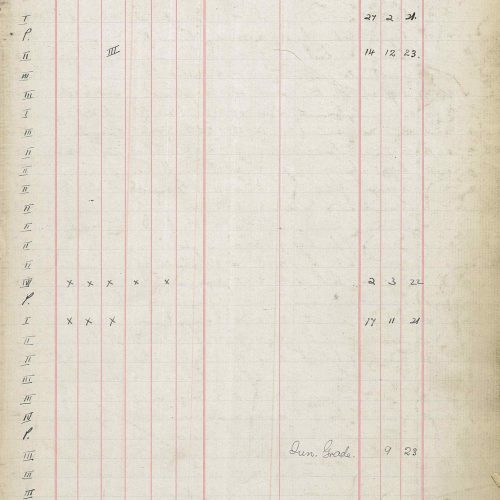 I 27 2 21.
P.
II III 14 12 23.
III
III
I
III
II
II
II
II
II
II
II
IV x x x x x 2 3 22
P.
I x x x 17 11 21
II
II
III
III
IV
P.
III Jun. Grade. 9 23
III
III